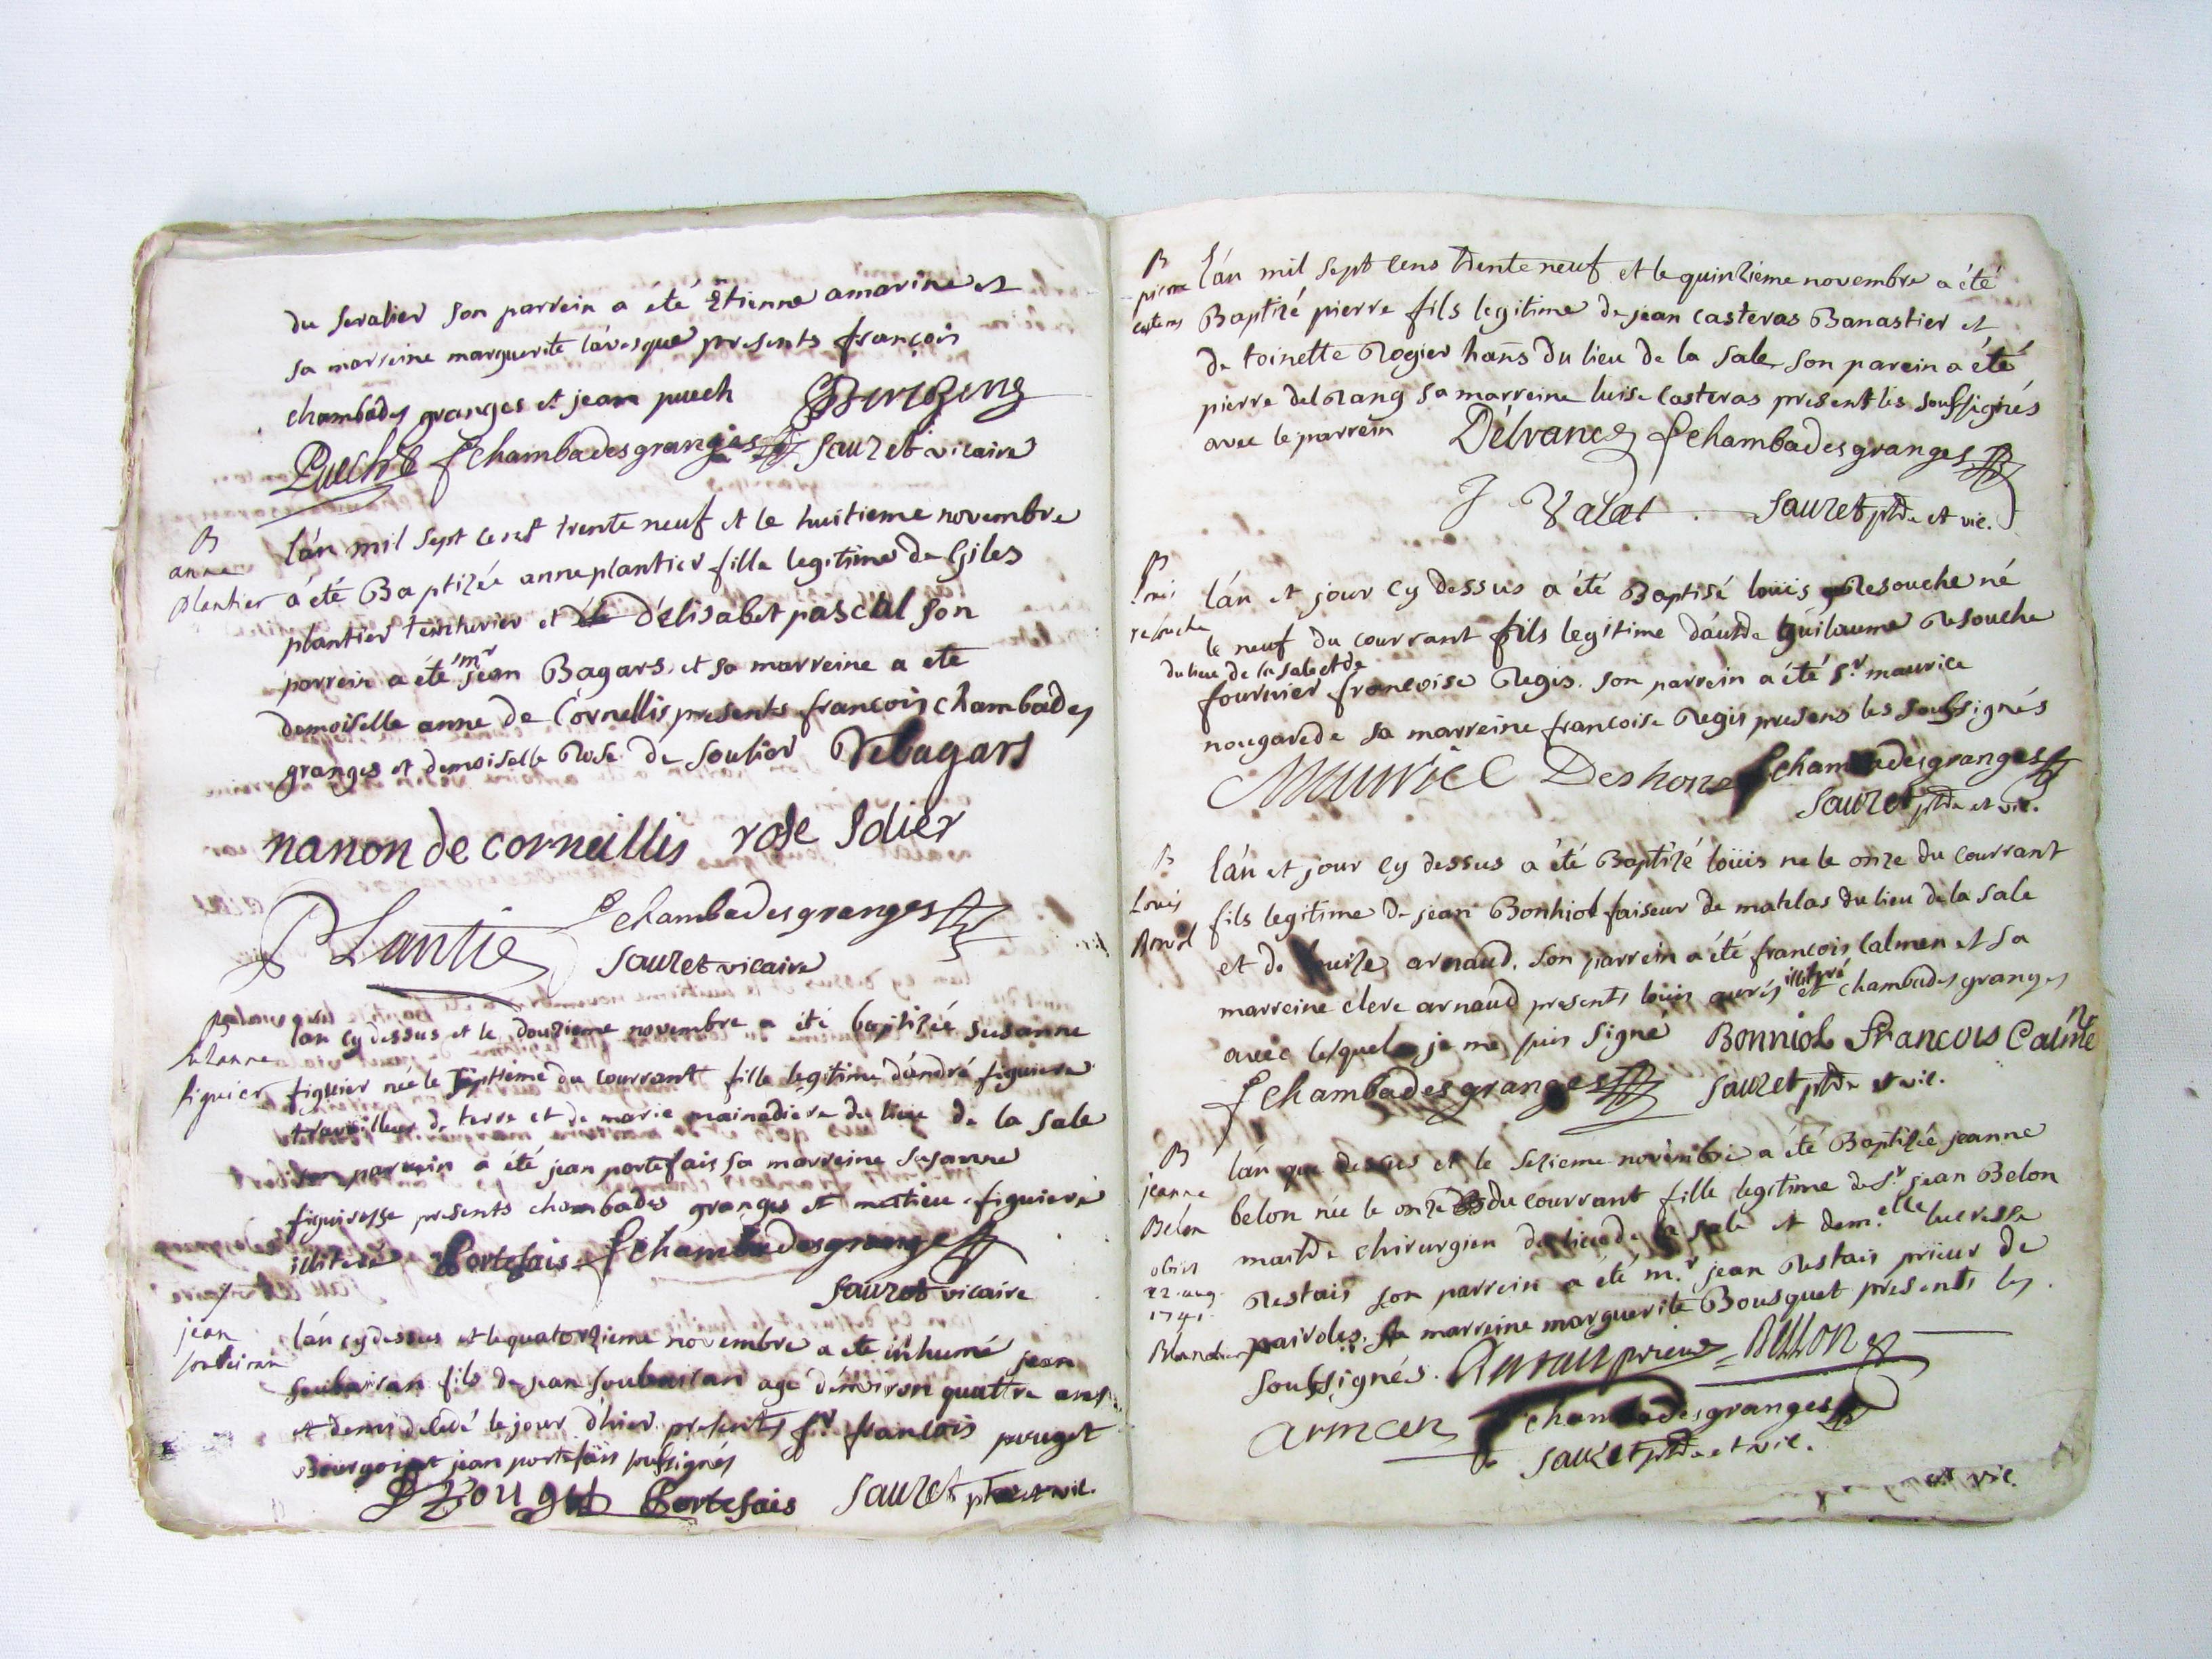 du seralier son parrein a été Étienne amarine et
sa marreine marguerite lávesque presents françois
chambades granges et jean puech
Puech fchambadesgranges sauzet vicaire
B
anne
plantier
lán mil sept cens trente neuf et le huitieme novembre
á été Baptizée anne plantier fille legitime de Giles
plantier teinturier et d'élisabet pascal son
parrein a été mr jean Bagars et sa marreine a ete
demoiselle anne de Cornellis presents francois chambades
granges et demoiselle Rose de soulier Debagars
nanon de corneillis rose Solier
PLantie fchambadesgranges
sauzet vicaire
B
suzanne
figuier
lan cy dessus et le douzieme novembre a été baptizée susanne
figuier née le septieme du courrant fille legitime dándré figuiere
travailleur de terre et de marie mainadiere du lieu de la sale
son parrein a été jean portefais sa marreine susanne
figuiresse presents chambades granges et matieu figuiere
illiteré Portefais fchambadesgranges
sauzet vicaire
jean
soubeiran
lán cy dessus et le quatorzieme novembre a ete inhumé jean
soubeiran fils de jean soubeiran agé démviron quattre ans
et demi décédé le jour d'hier presents sr francois pouget
Bourgois et jean portefais soussignés
Pouget Portefais sauzet ptre et vic.
B
pierre
casteras
lán mil sept cens trente neuf et le quinzième novembre a été
Baptizé pierre fils legitime de jean casteras Banastier et
de toinette Rogier hans du lieu de la sale son parein a été
pierre delrang sa marreine luise casteras present les soussignés
avec le parrein Delrang fchambadesgranges
J Valat sauzet ptre et vic.
B
louis
resouche
lán et jour cy dessus a été Baptisé louis Resouche né
le neuf du courrant fils legitime dáutre guilaume Resouche
du lieu de la sale et de
fournier francoise Regis. son parrein a été sr maurice
nougarede sa marreine francoise Regis presens les soussignés
Maurice Deshons fchambadesgranges
sauzet ptre et vic.
B
Louis
Boniol
lán et jour cy dessus a été Baptizé louis ne le onze du courrant
fils legitime de jean Bonhiol faiseur de matelas du lieu de la sale
et de louize arnaud. son parrein a été francois calmen et sa
marreine clere arnaud presents louis auvés illiteré et chambades granges
avec lesquels je me suis signé Bonniol Francois Calme
fchambadesgranges sauzet ptre et vic.
B
jeanne
Belon
obiit
22. aug.
1741.
lán que dessus et le sezieme novembre a été Baptizée jeanne
belon née le onze du courrant fille legitime de sr jean Belon
maitre chirurgien du lieu de la sale et demelle lucresse
Restais son parrein a été mr jean Restais prieur de
pairoles. sa marreine marguerite Bousquet presents les
soussignés. prieur Bellon
armen fchambadesgranges
sauzet ptre et vic.
et vic.